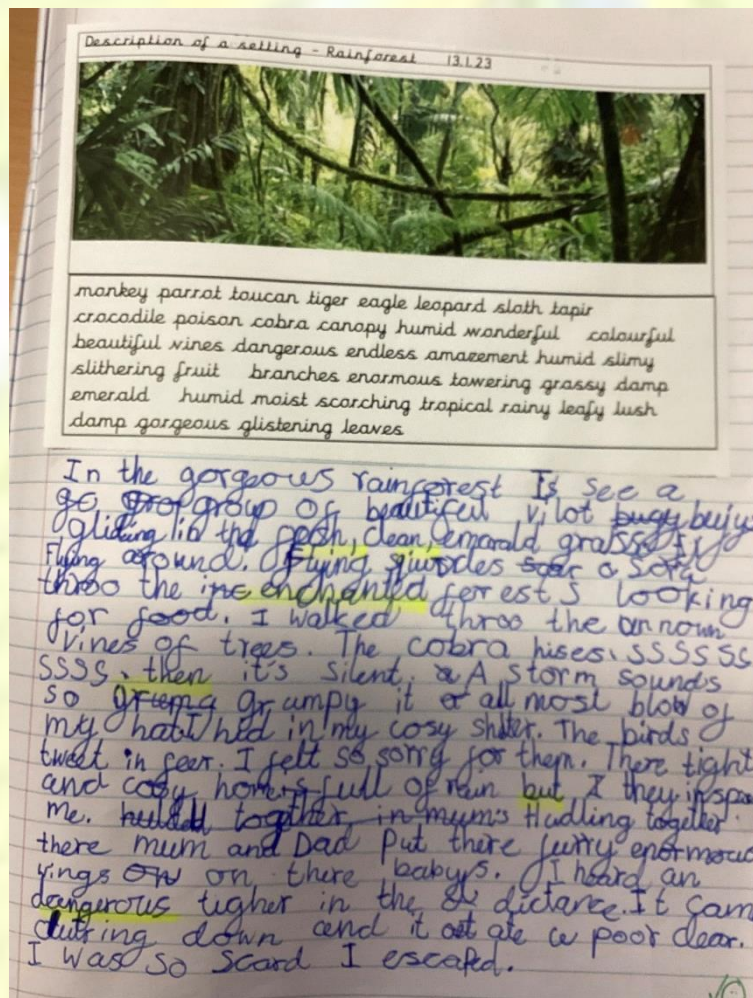 Description of a setting - Rainforest 13.1.23
monkey parrot toucan tiger eagle leopard sloth tapir
crocodile poison cobra canopy humid wonderful colourful
beautiful vines dangerous endless amazement humid slimy
slithering fruit branches enormous towering grassy damp
emerald humid moist scorching tropical rainy leafy lush
damp gorgeous glistening leaves
In the gorgeous rainforest I see a
group of beautiful vilot
gliding in the posh, clean, emarald
Flying around. Flying
throo the enchanted forest looking
for food. I walked throo the
vines of trees. The cobra hises. SSSSSS
SSSS, then it's silent. A storm sounds
so grumpy it all most blow of
my hat. I hid in my cosy shilter. The birds
tweet in feer. I felt so sorry for them. There tight
and cosy homes full of rain but they
me. Hudling together
there mum and Dad Put there furry
yings on there babys. I heard an
dangerous tigher in the distance. It cam
down and it ate a poor dear.
I was so scard I escaped.